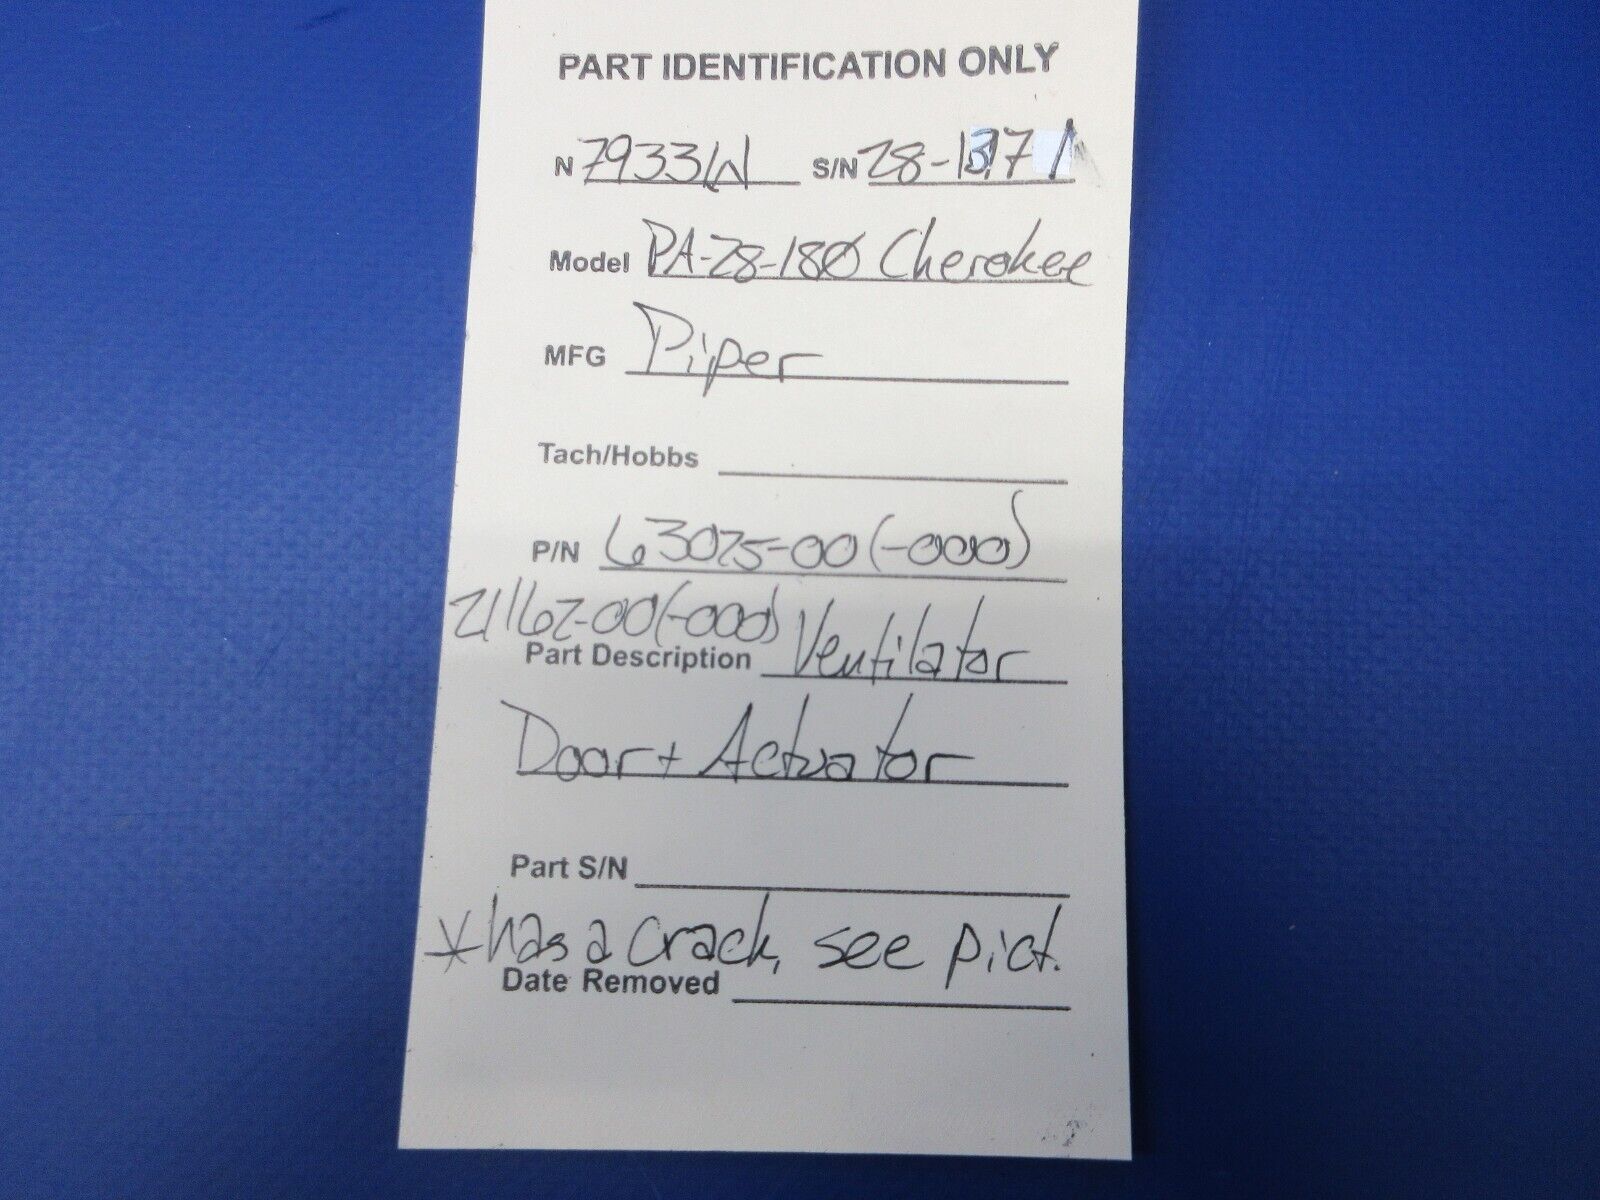 PART IDENTIFICATION ONLY
N 7933W S/N 28-1371
Model PA-28-180 Cherokee
MFG Piper
Tach/Hobbs
P/N 63025-00 (-000)
21162-00(-000)
Part Description Ventilator
Door + Actuator
Part S/N
*has a crack, see pict.
Date Removed